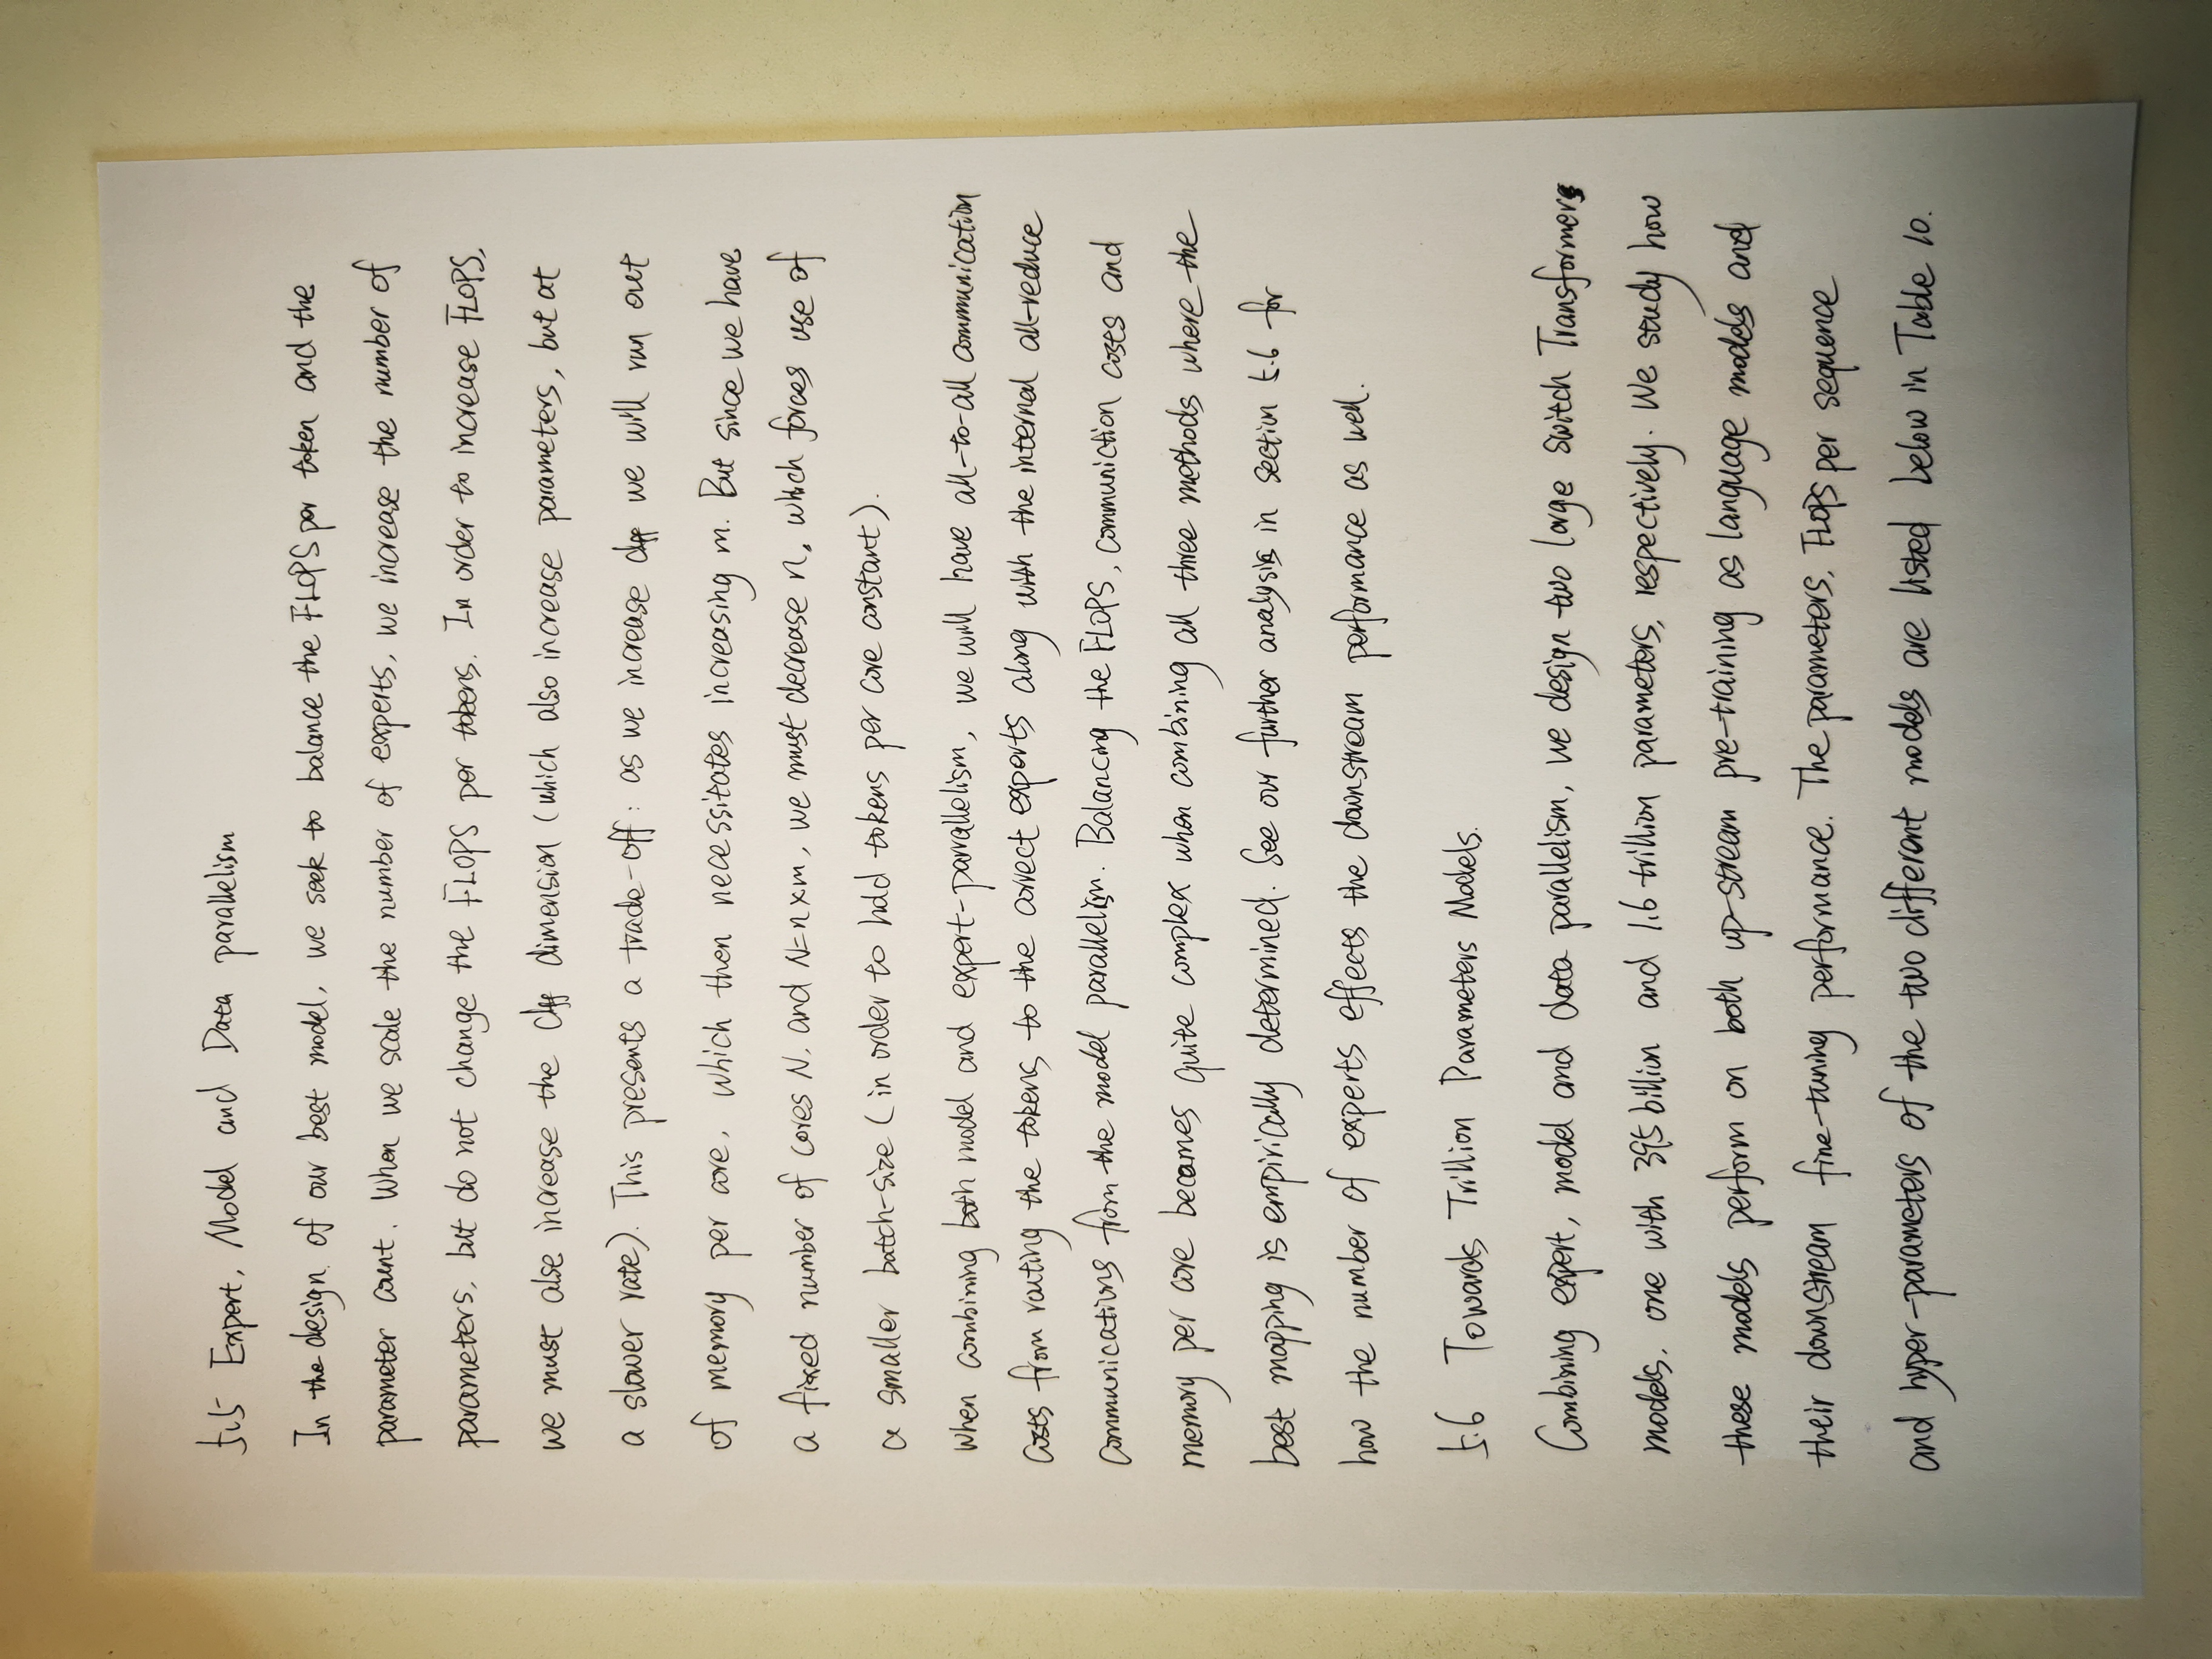 5.5 Expert, Model and Data parallelism
In the design of our best model, we seek to balance the FLOPS per token and the
parameter count. When we scale the number of experts, we increase the number of
parameters, but do not change the FLOPS per tokens. In order to increase FLOPS,
we must alse increase the dff dimension (which also increase parameters, but at
a slower rate). This presents a trade-off: as we increase dff we will run out
of memory per core, which then necessitates increasing m. But since we have
a fixed number of cores N, and N=n×m, we must decrease n, which forces use of
a smaller batch-size (in order to hold tokens per core constant).
When combining both model and expert-parrallelism, we will have all-to-all communication
costs from routing the tokens to the correct experts along with the internal all-reduce
communications from the model parallelism. Balancing the FLOPS, communiction costs and
memory per core becomes quite complex when combining all three methods where the
best mapping is empirically determined. See our further analysis in section 5.6 for
how the number of experts effects the downstream performance as well.
5.6 Towards Trillion Parameters Models.
Combining expert, model and data parallelism, we design two large switch Transformers
models, one with 395 billion and 1.6 trillion parameters, respectively. We study how
these models perform on both up-stream pre-training as language models and
their downstream fine-tuning performance. The parameters, FLOPS per sequence
and hyper-parameters of the two different models are listed below in Table 10.